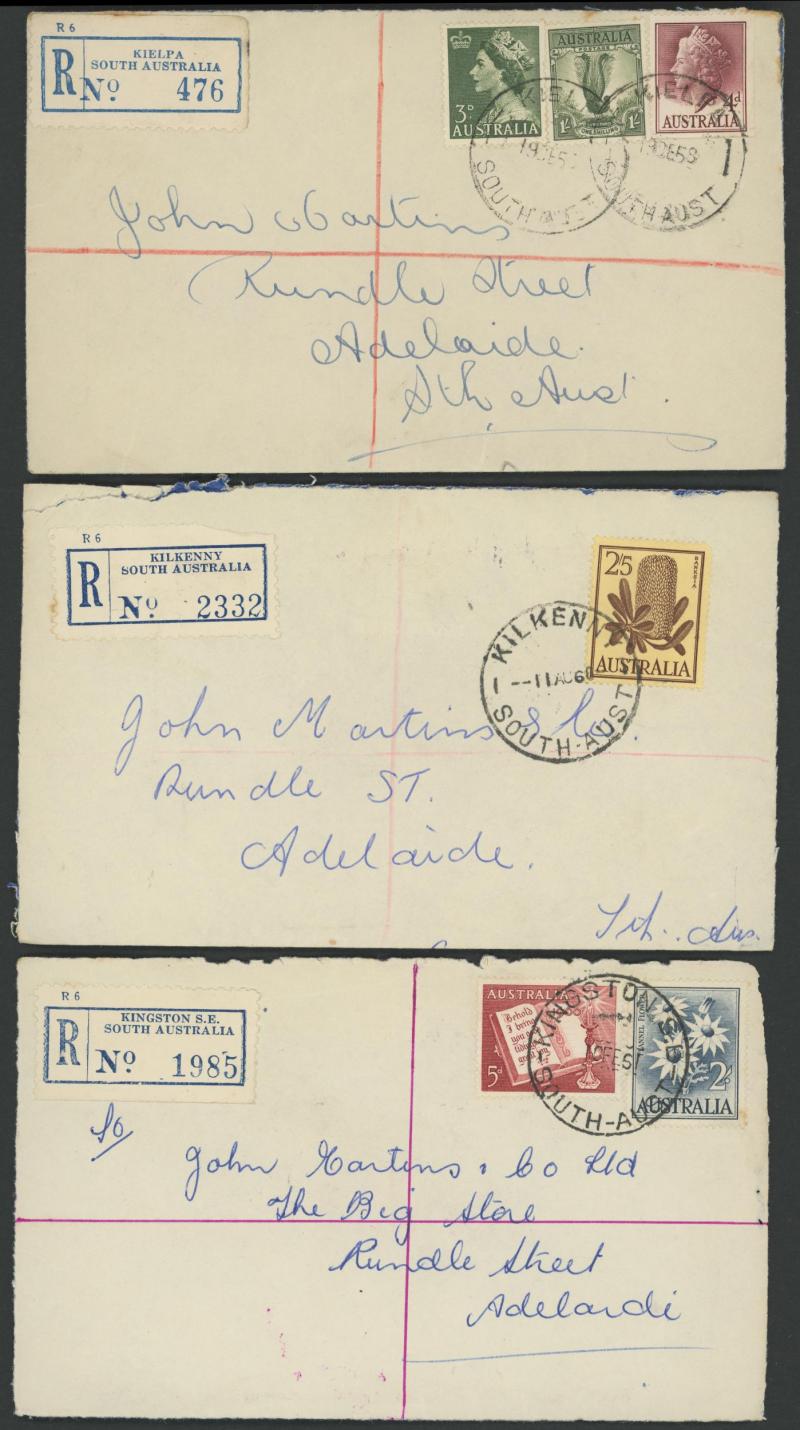 R 6
KIELPA
SOUTH AUSTRALIA
R No 476
3D
AUSTRALIA
AUSTRALIA
POSTAGE
1/- 1/-
ONE SHILLING
4d
AUSTRALIA
KIELPA
19DE58
SOUTH AUST
KIELPA
19DE58
SOUTH AUST
John Martins
Rundle Street
Adelaide.
Sth Aust.
R 6
KILKENNY
SOUTH AUSTRALIA
R No 2332
2/5
BANKSIA
AUSTRALIA
KILKENNY
11AU60
SOUTH-AUST
John Martins & Co.
Rundle ST.
Adelaide.
Sth. Aus.
R 6
KINGSTON S.E.
SOUTH AUSTRALIA
R No 1985
AUSTRALIA
Behold
I bring
you good
tidings of
great joy
5d
FLANNEL FLOWER
2/-
AUSTRALIA
KINGSTON S.E.
SOUTH-AUST
To
John Martins & Co Ltd
The Big Store
Rundle Street
Adelardi